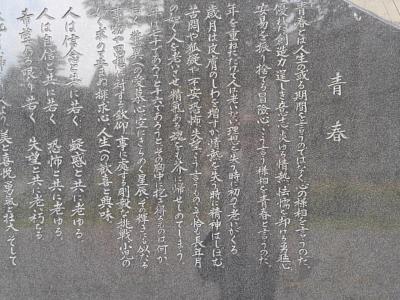 青春
青春とは人生の或る期間を言うのではなく心の様相を言うのだ。
優れた創造力、逞しき意志、炎ゆる情熱、怯懦を却ける勇猛心、
安易を振り捨てる冒険心、こう言う様相を青春と言うのだ。
年を重ねただけで人は老いない。理想を失う時に初めて老いがくる。
歳月は皮膚のしわを増すが情熱を失う時に精神はしぼむ。
苦悶や、狐疑や、不安、恐怖、失望、こう言うものこそ恰も長年月
の如く人を老いさせ、精気ある魂をも芥に帰せしめてしまう。
年は七十であろうと十六であろうと、その胸中に抱き得るものは何か。
曰く驚異への愛慕心、空にきらめく星晨、その輝きにも似たる
事物や思想に対する欽仰、事に処する剛毅な挑戦、小児の
如く求めて止まぬ探求心、人生への歓喜と興味。
人は信念と共に若く 疑惑と共に老ゆる、
人は自信と共に若く 恐怖と共に老ゆる、
希望ある限り若く 失望と共に老い朽ちる
より美と喜悦、勇気と壮大、そして